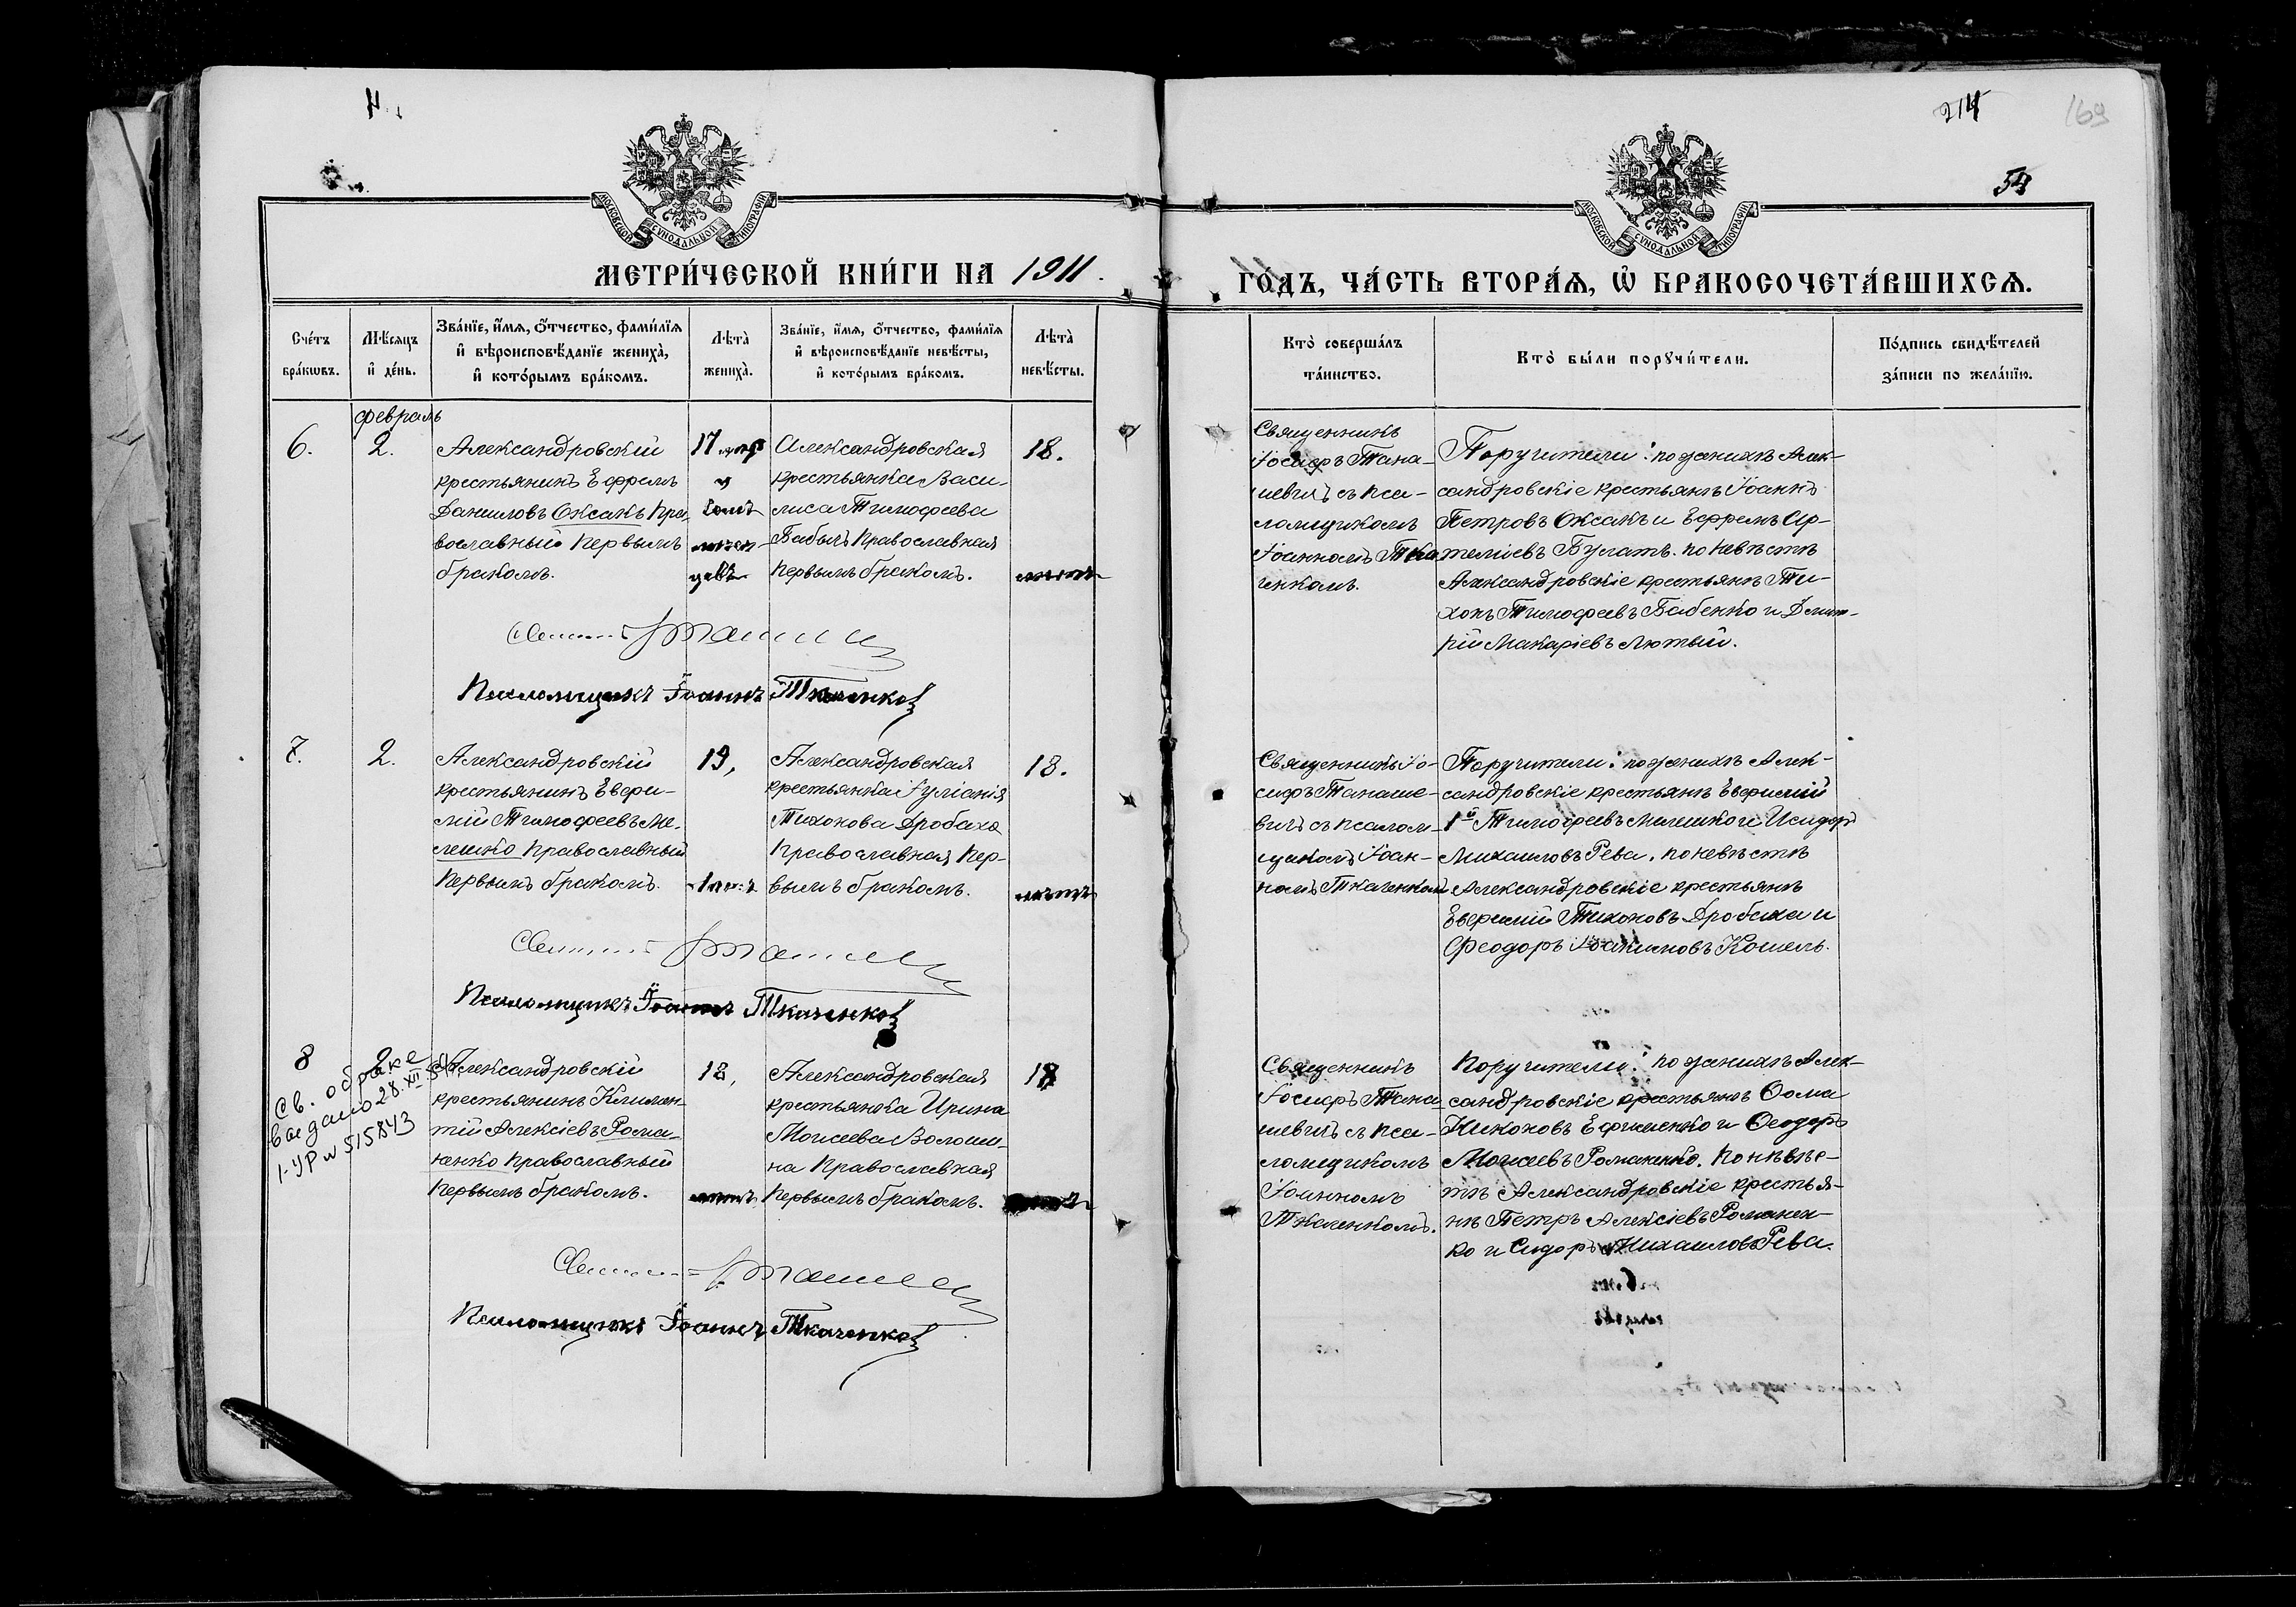 4
214
169
54
МОСКОВСКОЙ СѴНОДАЛЬНОЙ ТИПОГРАФІИ
МОСКОВСКОЙ СѴНОДАЛЬНОЙ ТИПОГРАФІИ
МЕТРИ́ЧЕСКОЙ КНИ́ГИ НА 1911.
ГО́ДЪ, ЧА́СТЬ ВТОРА́Ѧ, Ѽ БРАКОСОЧЕТА́ВШИХСѦ.
Сче́тъ бра́кѡвъ.
Мѣ́сяцъ и́ де́нь.
Зва́нїе, и́мѧ, ѻ́тчество, фами́лїѧ
и́ вѣроисповѣ́данїе жениха̀,
и́ кото́рымъ бра́комъ.
Лѣта̀ жениха̀.
Зва́нїе, и́мѧ, ѻ́тчество, фами́лїѧ
и́ вѣроисповѣ́данїе невѣ́сты,
и́ кото́рымъ бра́комъ.
Лѣта̀ невѣ́сты.
Кто̀ соверша́лъ
та́инство.
Кто̀ бы́ли порꙋчи́тели.
По́дпись свидѣ́телей
за́писи по жела́нїю.
февраль
6.
2.
Александровскій
крестьянинъ Ефремъ
Даниловъ Оксакъ Пра-
вославный первымъ
бракомъ.
17
Александровская
крестьянка Васи-
лиса Тимофеева
Бабычъ Православная
первымъ бракомъ.
18.
лѣтъ
Священникъ
Іосифъ Тана-
шевичъ съ пса-
ломщикомъ
Іоанномъ Тка
ченкомъ.
Поручители: по женихѣ Алек-
сандровскіе крестьяне Іоаннъ
Петровъ Оксакъ и Ефремъ Ар-
теміевъ Булатъ. по невѣстѣ
Александровскіе крестьяне Ти-
хонъ Тимофеевъ Бабенко и Дмит-
рій Макаріевъ Лютый.
Псаломщикъ Іоаннъ Ткаченко
7.
2.
Александровскій
крестьянинъ Евфи-
мій Тимофеевъ Ме-
лешко Православный
первымъ бракомъ.
19,
лѣтъ
Александровская
крестьянка Іуліанія
Тихонова Дробаха
Православная пер-
вымъ бракомъ.
18.
лѣтъ
Священникъ Іо-
сифъ Танаше-
вичъ съ псалом-
щикомъ Іоан-
номъ Ткаченкомъ
Поручители: по женихѣ Алек-
сандровскіе крестьяне Евфимій
1й Тимофеевъ Мелешко и Исидоръ
Михаиловъ Рева. по невѣстѣ
Александровскіе крестьяне
Евфимій Тихоновъ Дробаха и
Феодоръ Іоакимовъ Кошель.
Псаломщикъ Іоаннъ Ткаченко
8
2
Св. о браке
выдано 28.XII
1-УР № 515843
Александровскій
крестьянинъ Климен-
тій Алексіевъ Рома-
ненко Православный
первымъ бракомъ.
18,
лѣтъ
Александровская
крестьянка Ирина
Моисеева Волоши-
на Православная
первымъ бракомъ.
Священникъ
Іосифъ Тана
шевичъ съ пса-
ломщикомъ
Іоанномъ
Ткаченкомъ.
Поручители: по женихѣ Алек-
сандровскіе крестьяне Ѳома
Никоновъ Ефименко и Ѳеодоръ
Моисеевъ Романенко. По невѣс-
тѣ Александровскіе крестья-
не Петръ Алексіевъ Романен-
ко и Сидоръ Михаиловъ Рева.
Псаломщикъ Іоаннъ Ткаченко